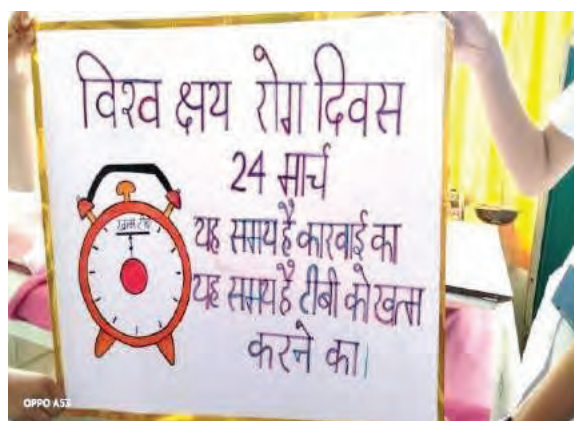 विश्व क्षय रोग दिवस
24 मार्च
यह समय है कारवाई का
यह समय है टीबी को खत्म
करने का।
OPPO A53